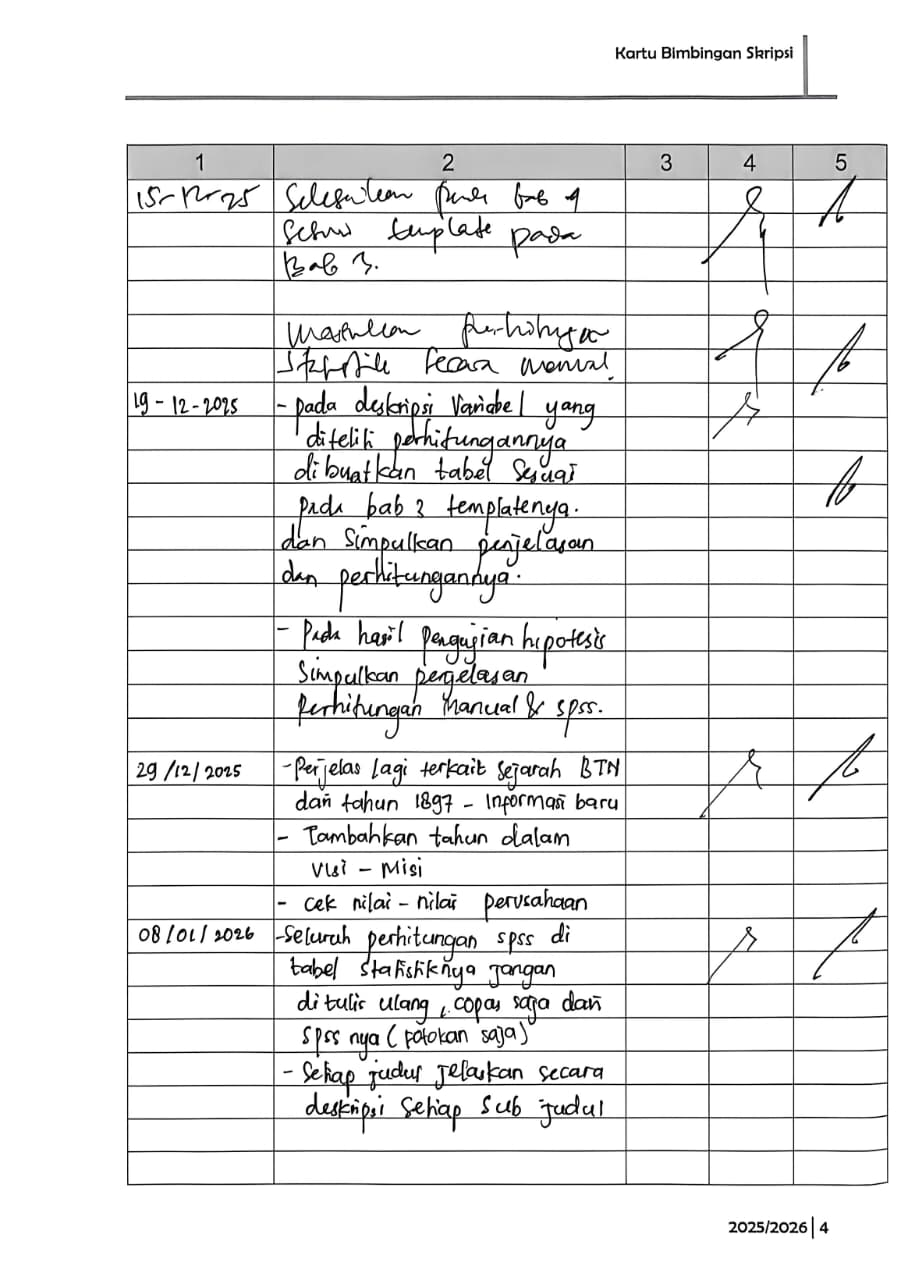 Kartu Bimbingan Skripsi
1 2 3 4 5
15-12-25 Selesaikan bab 4
template pada
Bab 3.
Masukkan perhitungan
Statistik secara manual.
19-12-2025 - pada deskripsi Variabel yang
diteliti perhitungannya
dibuatkan tabel Sesuai
pada bab 3 templatenya.
dan Simpulkan penjelasan
dan perhitungannya.
- Pada hasil Pengujian hipotesis
Simpulkan penjelasan
Perhitungan Manual & SPSS.
29/12/2025 -Perjelas lagi terkait Sejarah BTN
dari tahun 1897 - Informasi baru
- Tambahkan tahun dalam
Visi - Misi
- cek nilai-nilai perusahaan
08/01/2026 -Seluruh perhitungan spss di
tabel Statistiknya jangan
ditulis ulang, copas saja dari
SPSS nya (fotokan saja)
- Setiap judul jelaskan secara
deskripsi Setiap Sub judul
2025/2026|4